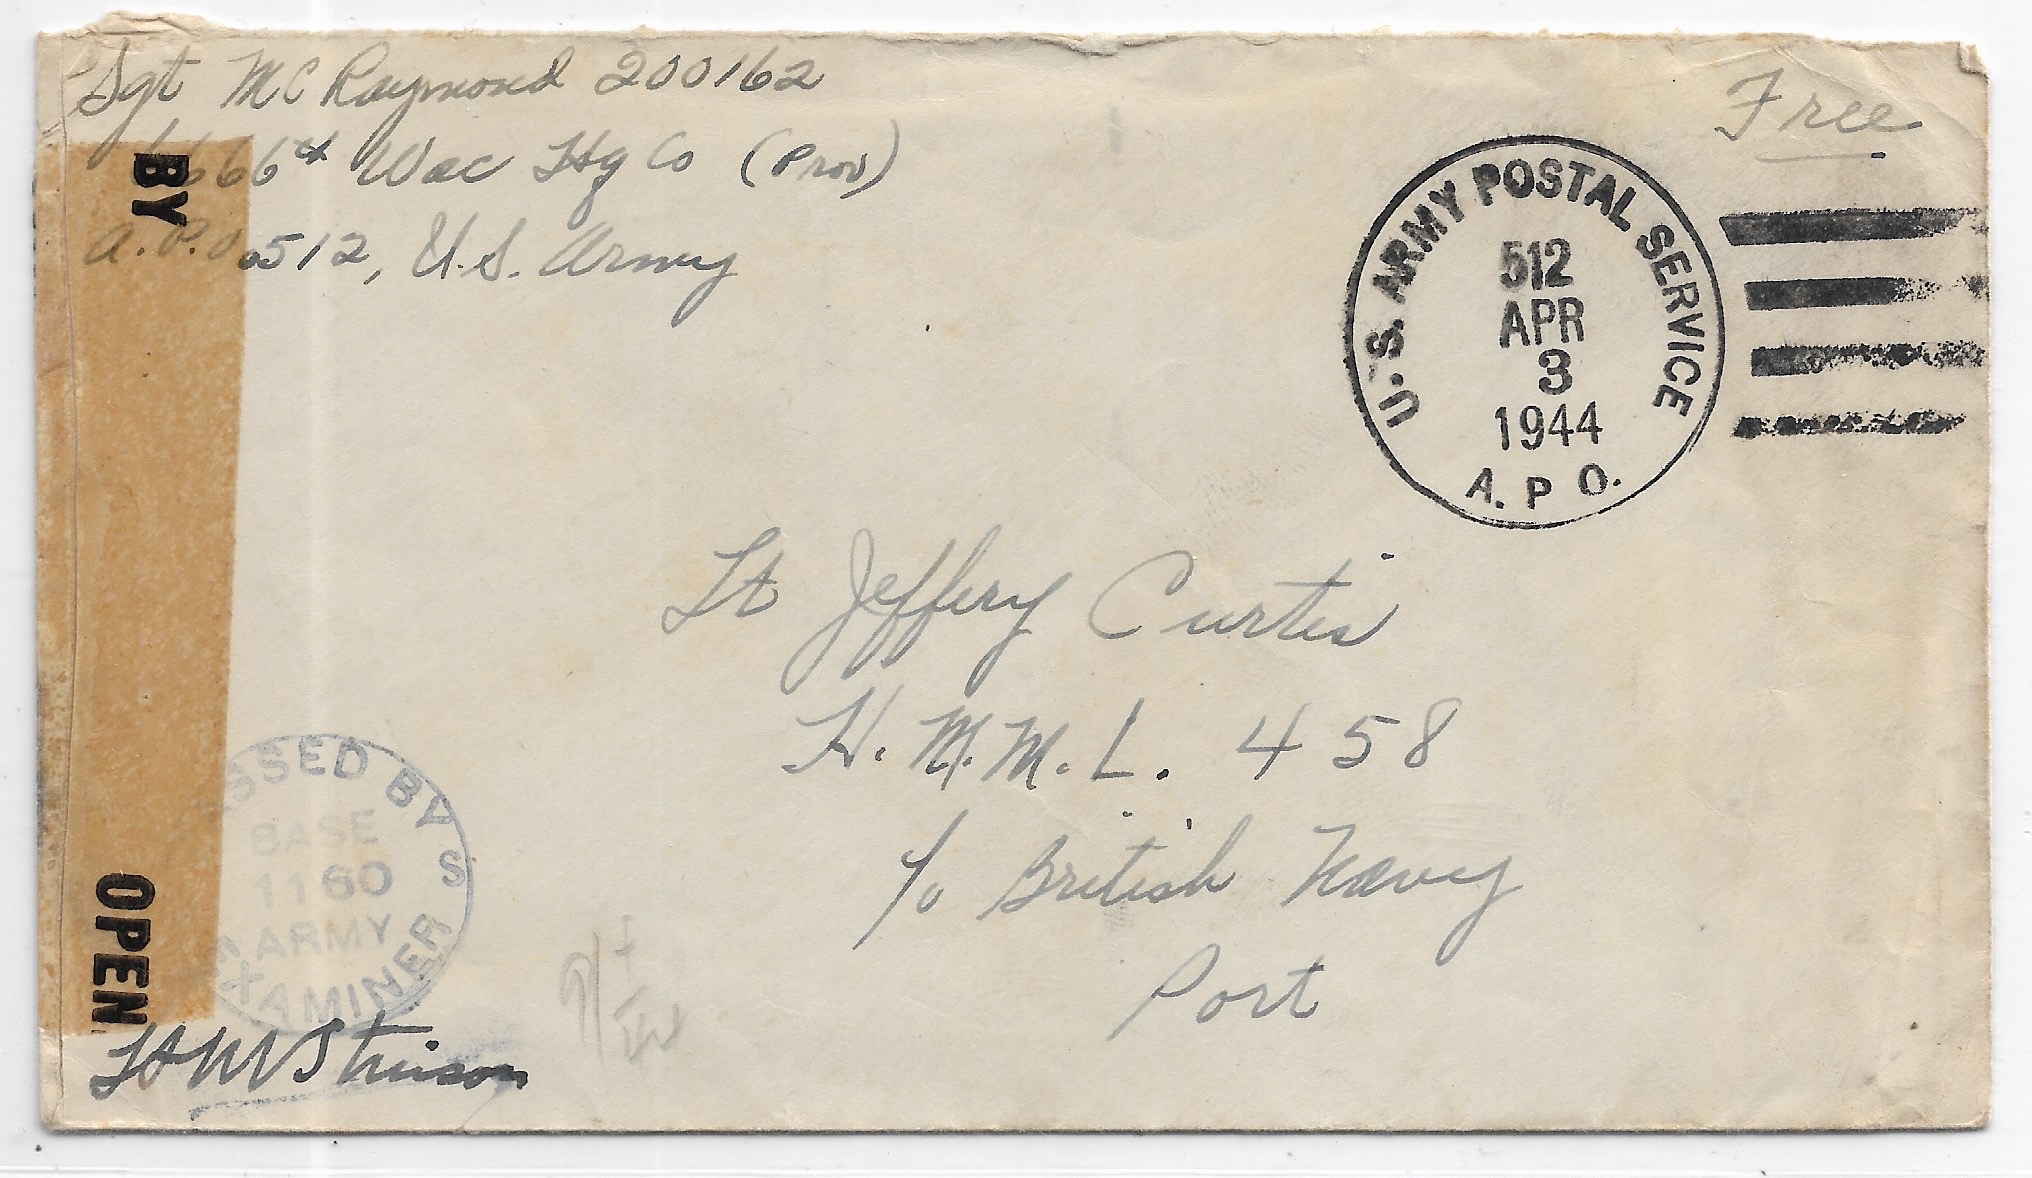 Sgt MC Raymond 200162
6666th Wac Hq Co (Prov)
A.P.O. 512, U.S. Army
Free
U.S. ARMY POSTAL SERVICE
512
APR
3
1944
A.P.O.
Lt Jeffery Curtis
H.M.M.L. 458
c/o British Navy
Port
OPEN BY
SSED BY
BASE
1160
ARMY
S
XAMINER